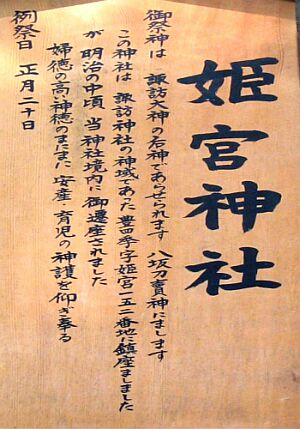 姫宮神社
御祭神は 諏訪大神の后神であらせられます 八坂刀賣神にまします
この神社は 諏訪神社の神域であった 豊四季字姫宮一五二番地に鎮座ましました
が 明治の中頃 当神社境内に御遷座されました
婦徳の高い神徳のまにまに 安産 育児の神護を仰ぎ奉る
例祭日 正月二十日